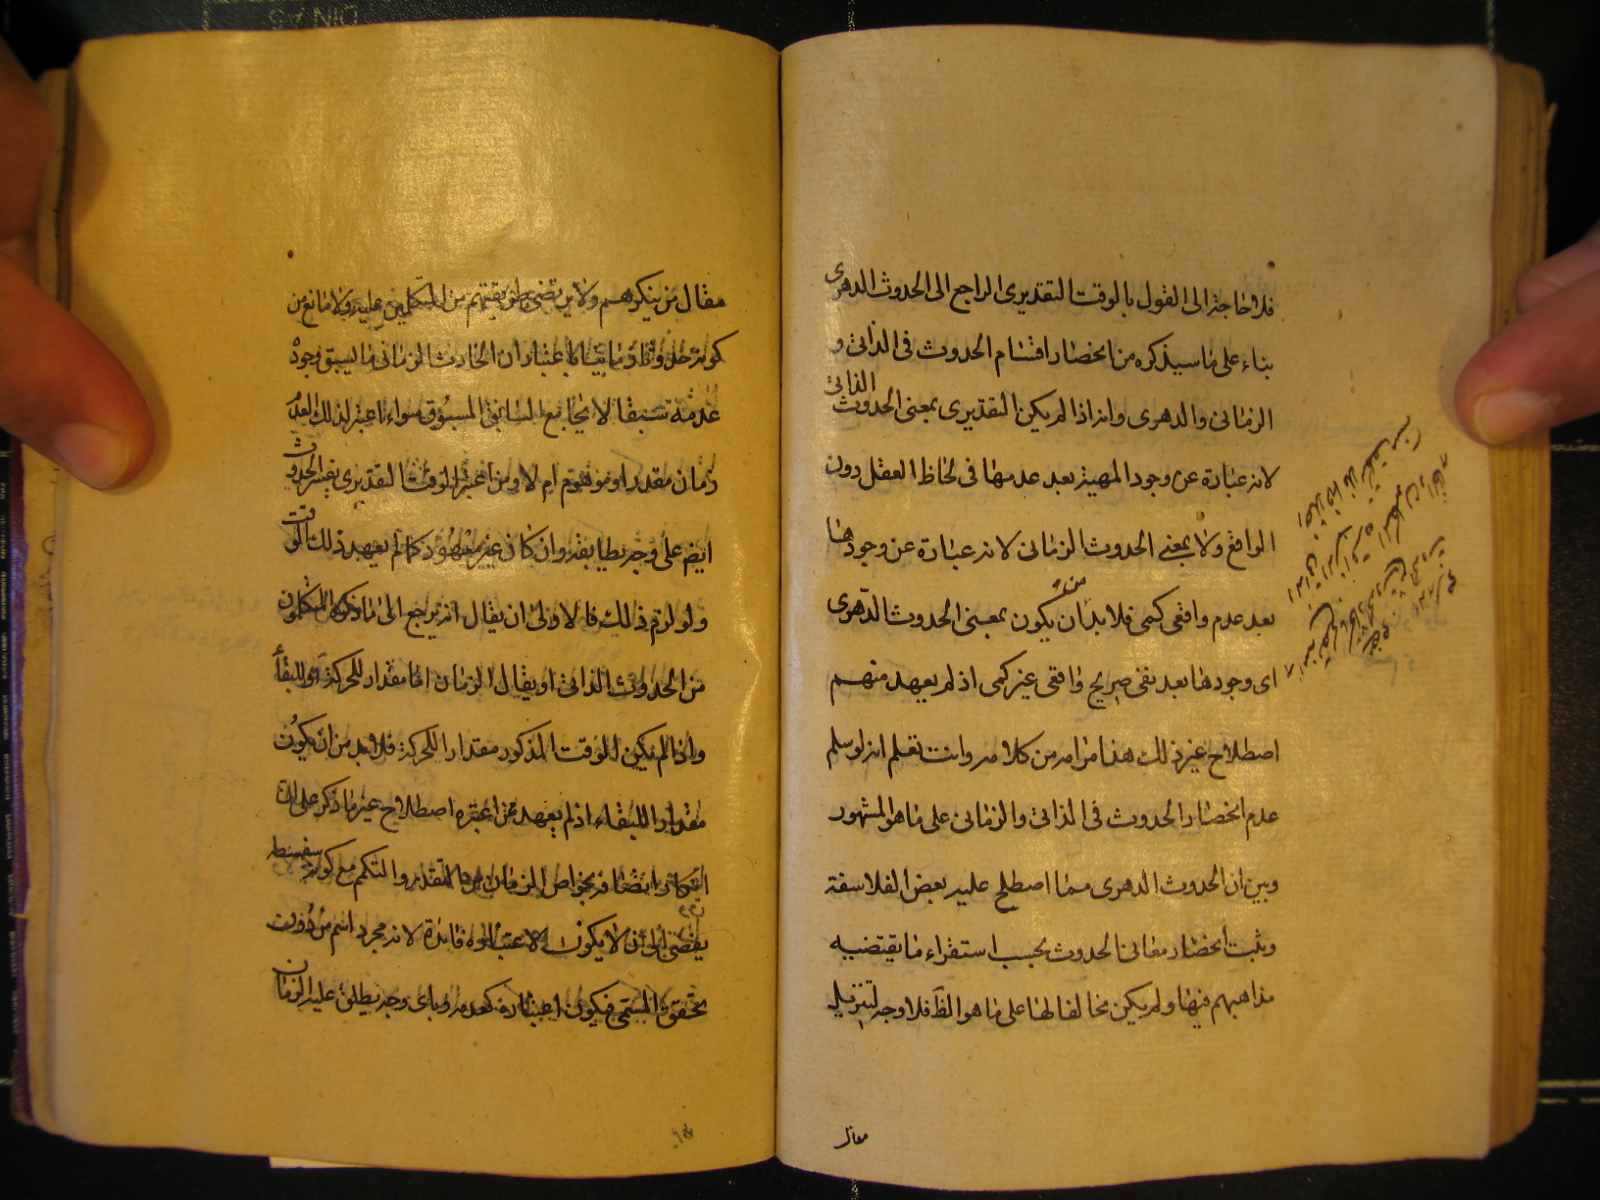 فلا حاجة الى القول بالوقت التقديرى الراجع الى الحدوث الدهرى
بناء على ما سيذكره من انحصار اقسام الحدوث فى الذاتى و
الزمانى والدهرى وانه اذا لم يكن التقديرى بمعنى الحدوث الذاتى
لانه عبارة عن وجود المهية بعد عدمها فى لحاظ العقل دون
الواقع ولا بمعنى الحدوث الزمانى لانه عبارة عن وجودها
بعد عدم واقعى كمى فلا بد من ان يكون بمعنى الحدوث الدهرى
اى وجودها بعد نفى صريح واقعى غير كمى اذ لم يعهد منهم
اصطلاح غير ذلك هذا مرامه من كلامه وانت تعلم انه لو سلم
عدم انحصار الحدوث فى الذاتى والزمانى على ما هو المشهور
وبين ان الحدوث الدهرى مما اصطلح عليه بعض الفلاسفة
ويثبت انحصار معانى الحدوث بحسب استقراء ما يقتضيه
مذاهبهم فيها ولم يكن مخالفا لها على ما هو الظ فلا وجه لتنزيل
مقال
مقال من ينكرهم ولا يرتضى طريقتهم من المتكلمين عليه ولا مانع من
كونه حادثا زمانيا باعتبار ان الحادث الزمانى ما يسبق وجوده
عدمه سبقا لا يجامع السابق المسبوق سواء اعتبر لذلك العدم
زمان مقدر او موهوم ام لا ومن اعتبر الوقت التقديرى يفسر الحدوث
ايضا على وجه يطابقه وان كان غير معهود كما لم يعهد ذلك الوقت
ولو لزم ذلك فالاولى ان يقال انه يرجع الى ما ذكره المتكلمون
من الحدوث الذاتى او يقال الزمان اما مقدار للحركة او للبقاء
واذا لم يكن الوقت المذكور مقدارا للحركة فلا بد من ان يكون
مقدارا للبقاء اذ لم يعهد ممن اعتبره اصطلاح غير ما ذكر على ان
بخواص الزمان من التقدير والتكمم مع كونه سفسطة
يفضى الى ان لا يكون لاعتباره فائدة لانه مجرد اسم من دون
تحقق المسمى فيكون اعتباره كعدمه وباى وجه يطلق عليه الزمان